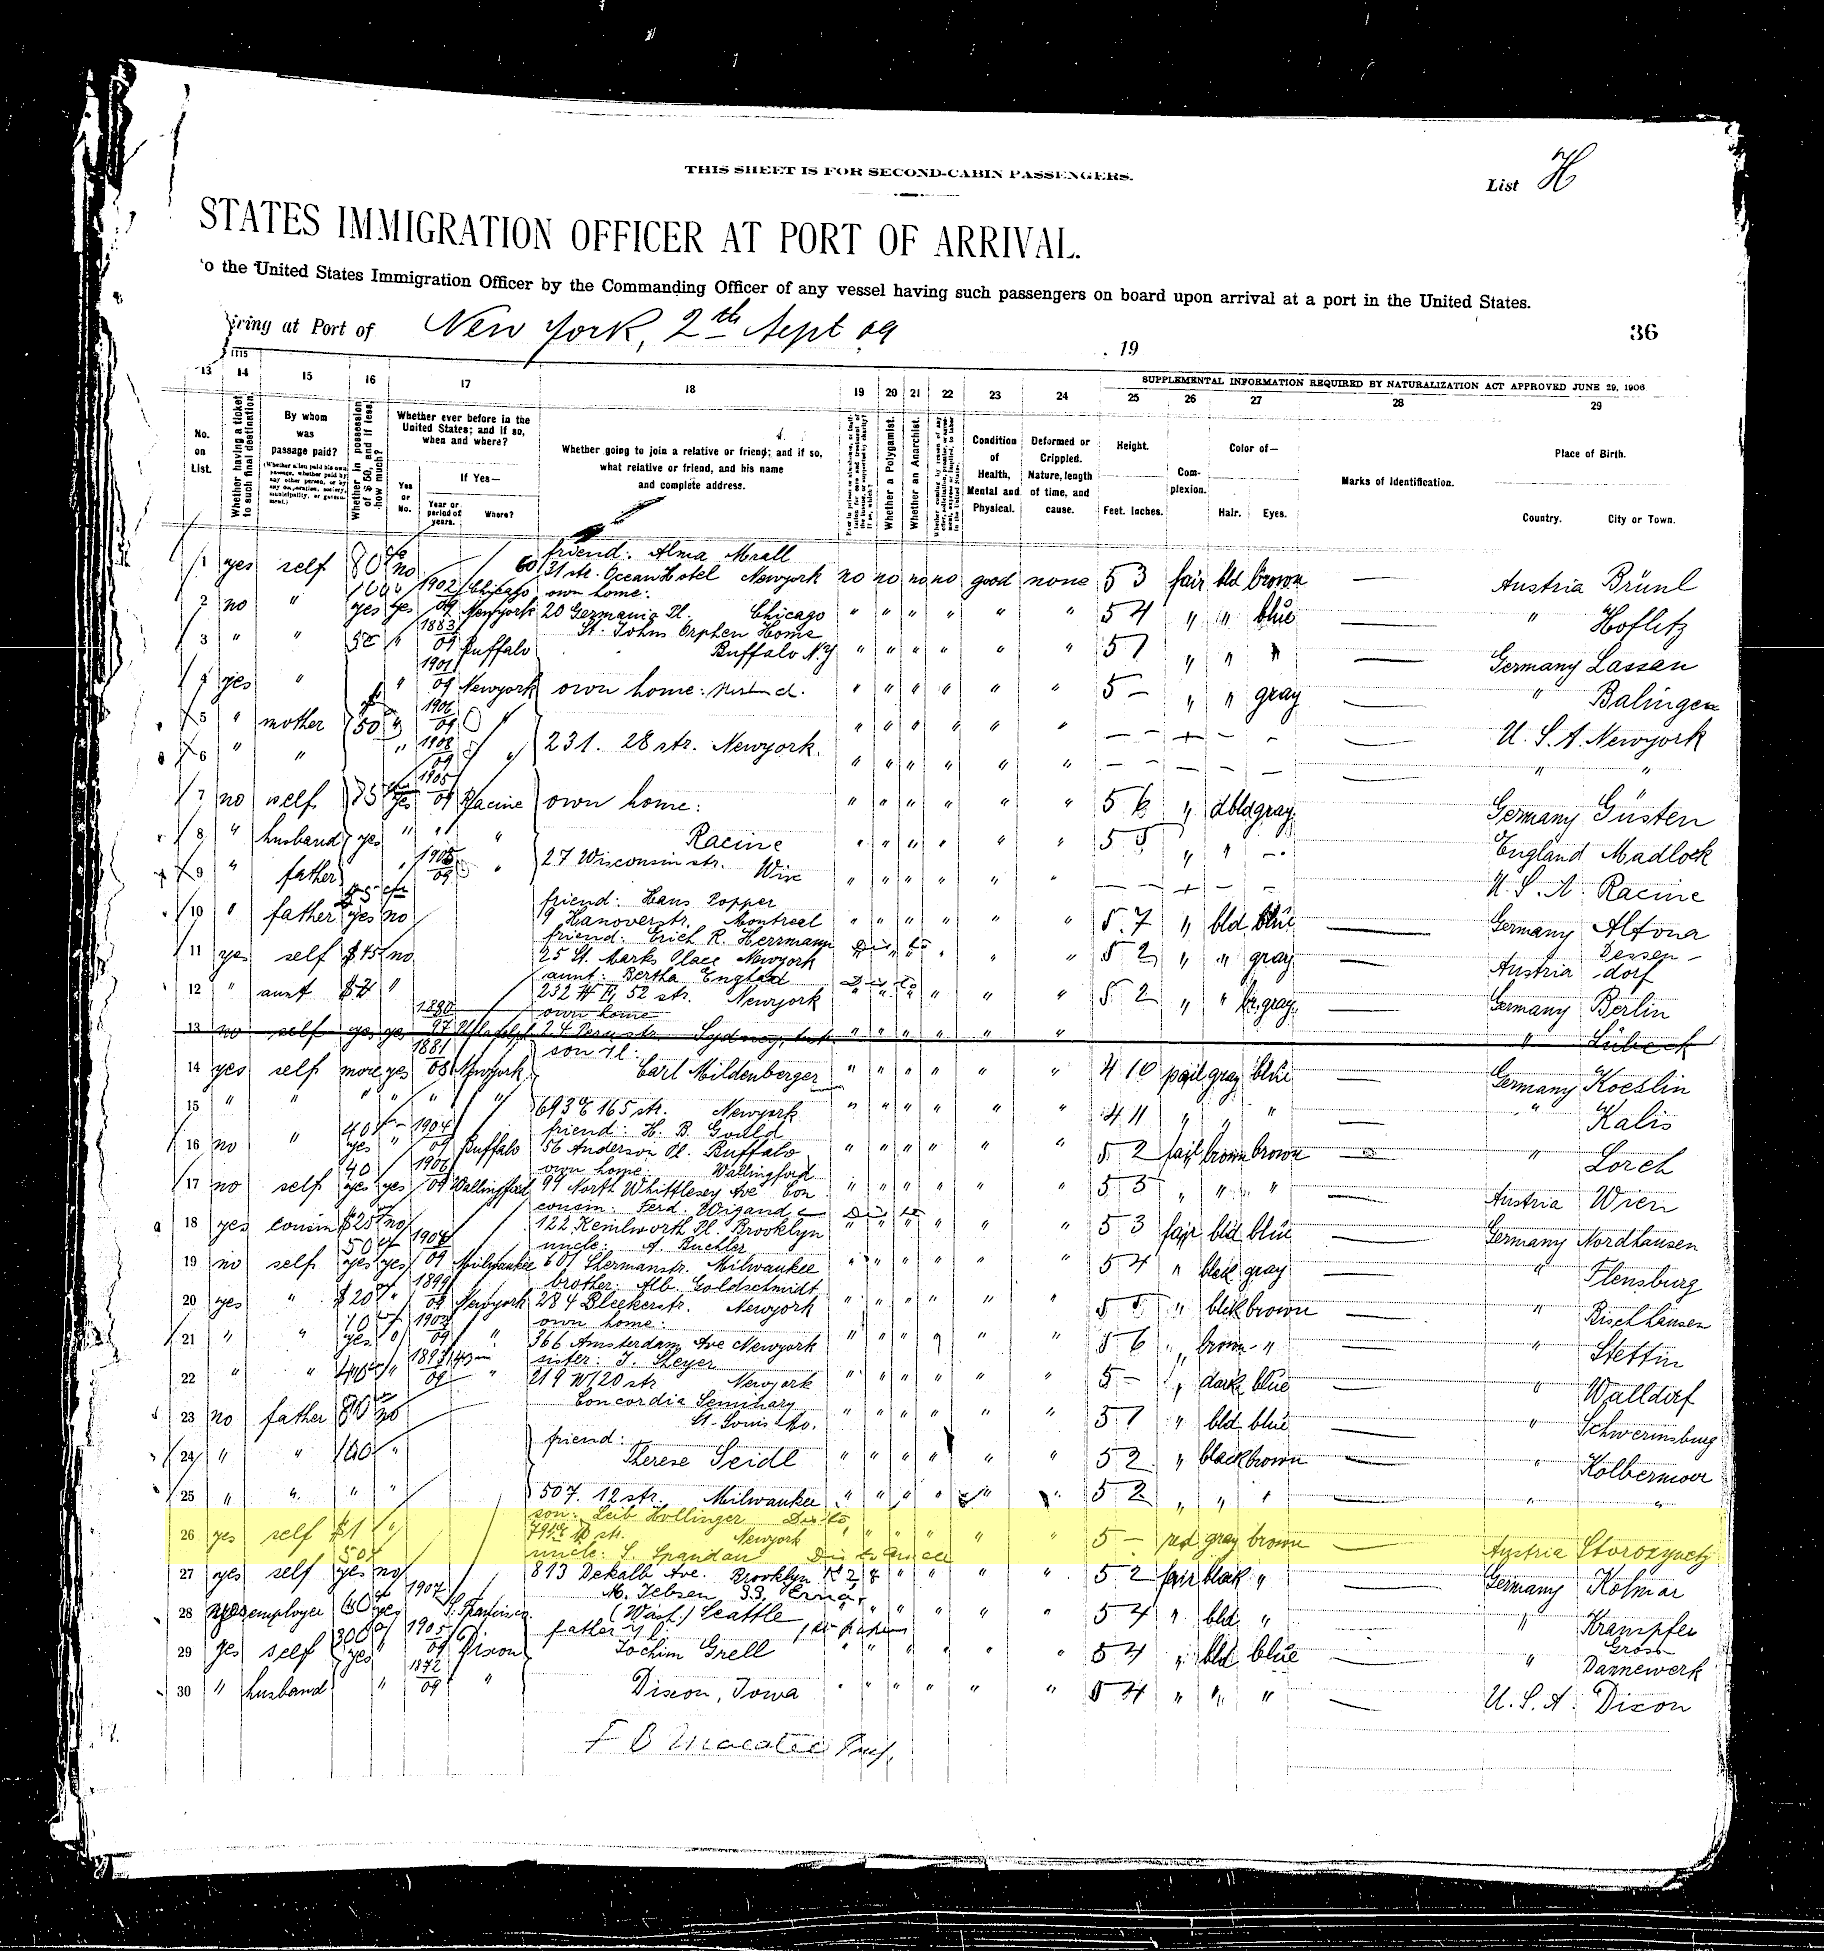 THIS SHEET IS FOR SECOND-CABIN PASSENGERS.
List H
STATES IMMIGRATION OFFICER AT PORT OF ARRIVAL.
o the United States Immigration Officer by the Commanding Officer of any vessel having such passengers on board upon arrival at a port in the United States.
iring at Port of New York, 2th Sept 09
, 19
36
SUPPLEMENTAL INFORMATION REQUIRED BY NATURALIZATION ACT APPROVED JUNE 29, 1906
13 14 15 16 17 18 19 20 21 22 23 24 25 26 27 28 29
No. on List.
Whether having a ticket to such final destination.
By whom was passage paid?
Whether in possession of $50, and if less, how much?
Whether ever before in the United States; and if so, when and where?
If Yes—
Yes or No.
Year or period of years.
Where?
Whether going to join a relative or friend; and if so, what relative or friend, and his name and complete address.
Whether a Polygamist.
Whether an Anarchist.
Condition of Health, Mental and Physical.
Deformed or Crippled. Nature, length of time, and cause.
Height.
Feet. Inches.
Complexion.
Color of—
Hair. Eyes.
Marks of Identification.
Place of Birth.
Country. City or Town.
friend: Alma Mrall
1 yes self 80 no 60 / 31 str. Ocean Hotel Newyork no no no no good none 5 3 fair bld brown — Austria Brünl
1902 Chicago own home:
2 no " yes yes 09 Newyork 20 Germania Pl. Chicago " " " " " " 5 4 " " blue — " Hoflitz
1883 St. Johns Orphen Home
3 " " 50 " 09 Buffalo Buffalo N.Y " " " " " " 5 7 " " " — Germany Lassan
1901
4 yes " " 09 Newyork own home: " " " " " " 5 — " " gray — " Balingen
1906
5 " mother 50 " 09 " " " " " " — — + — - — U. S. A. Newyork
6 " " " 1908 09 " 231. 28 str. Newyork. " " " " " " — — — — — — " "
1905
7 no self 75 yes 09 Racine own home: " " " " " " 5 6 " dbld gray — Germany Güsten
8 " husband yes " " " Racine " " " " " " 5 5 " " — — England Madlock
9 " father " 1908 09 " 27 Wisconsin str. Wisc " " " " " " — — + — — — U. S. A. Racine
friend: Hans Popper
10 " father yes no 9 Hanoverstr. Montreal " " " " " " 5 7 " bld blue — Germany Altona
friend: Erich R. Herrmann
11 yes self $45 no 25 St. Marks Place Newyork " " " 5 2 " " gray — Austria Dessen-dorf
aunt: Bertha England
12 " aunt $2 " 232 W 52 str. Newyork " " " " 5 2 " " br. gray — Germany Berlin
1880 own home
13 no self yes yes 97 24 Peru str. Sydney " " " " " " " Lübeck
1881 son il:
14 yes self more yes 08 Newyork Carl Mildenberger " " " " " " 4 10 pail gray blue — Germany Koeslin
15 " " " " " " 693 E 165 str. Newyork " " " " " " 4 11 " " " — " Kalis
40 1904 friend: H. B. Gould
16 no " yes " 09 Buffalo 56 Anderson Pl. Buffalo " " " " " " 5 2 fair brown brown — " Lorch
40 1906 own home: Wallingford
17 no self yes yes 09 Wallingford 99 North Whittlesey Ave Con " " " " " " 5 5 " " " — Austria Wien
cousin: Ferd. Wigand
18 yes cousin $25 no 122 Kenilworth Pl. Brooklyn " " " " " " 5 3 fair bld blue — Germany Nordhausen
50 1908 uncle: A. Buehler
19 no self yes yes 09 Milwaukee 601 Shermanstr. Milwaukee " " " " " " 5 4 " blck gray — " Flensburg
1899 brother: Alb. Goldschmidt
20 yes " $20 " 09 Newyork 284 Bleekerstr. Newyork " " " " " " 5 5 " blck brown — " Bischhausen
10 1903 own home:
21 " " yes 09 " 366 Amsterdam Ave Newyork " " " " " " 5 6 " brown " — " Stettin
1893 sister: J. Steyer
22 " " " 09 " 219 W 120 str Newyork " " " " " " 5 — " dark blue — " Walldorf
Concordia Seminary
23 no father 80 no St. Louis Mo. " " " " " " 5 7 " bld blue — " Schwerinsburg
friend:
24 " " 100 " Therese Seidl " " " " " " 5 2 " black brown — " Kolbermoor
25 " " " " 507. 12 str. Milwaukee " " " " " " 5 2 " " " — " "
son: Leib Hollinger
26 yes self $1 " str. Newyork " " " " " " 5 — red gray brown — Austria Storozynetz
50 uncle: S. Spandau
27 yes self yes no 813 Dekalb Ave. Brooklyn " " " " 5 2 fair black " — Germany Kolmar
1907 M. Jebsen S.S. Erna,
28 employer 60 yes S. Francisco (Wash.) Seattle " " " " " " 5 4 " bld " — " Krampfer
300 1905 father il:
29 yes self yes " 09 Dixon Jochim Grell " " " " " " 5 4 " bld blue — " Gross Dannewerk
1872
30 " husband " 09 " Dixon, Iowa " " " " " " 5 4 " " " — U. S. A. Dixon